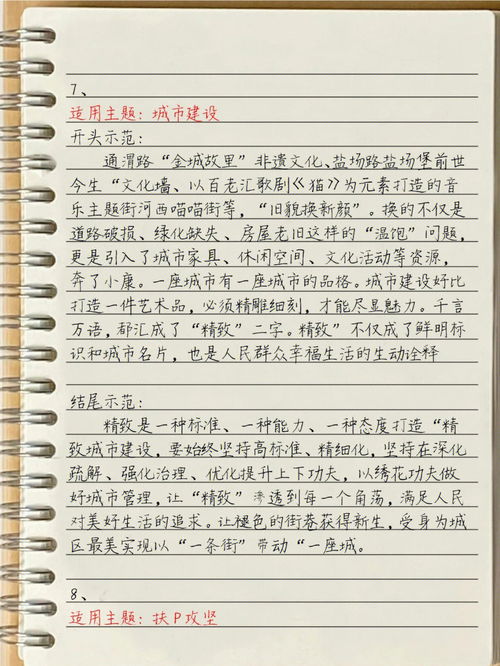 7、
适用主题：城市建设
开头示范：
通渭路“金城故里”非遗文化、盐场路盐场堡前世
今生“文化墙、以百老汇歌剧《猫》为元素打造的音
乐主题街河西喵喵街等，“旧貌换新颜”。换的不仅是
道路破损、绿化缺失、房屋老旧这样的“温饱”问题，
更是引入了城市家具、休闲空间、文化活动等资源，
奔了小康。一座城市有一座城市的品格。城市建设好比
打造一件艺术品，必须精雕细刻，才能尽显魅力。千言
万语，都汇成了“精致”二字。精致”不仅成了鲜明标
识和城市名片，也是人民群众幸福生活的生动诠释
结尾示范：
精致是一种标准、一种能力、一种态度打造“精
致城市建设，要始终坚持高标准、精细化，坚持在深化
疏解、强化治理、优化提升上下功夫，以绣花功夫做
好城市管理，让“精致”渗透到每一个角落，满足人民
对美好生活的追求。让褪色的街巷获得新生，受身为城
区最美实现以“一条街”带动“一座城。
8、
适用主题：扶P攻坚